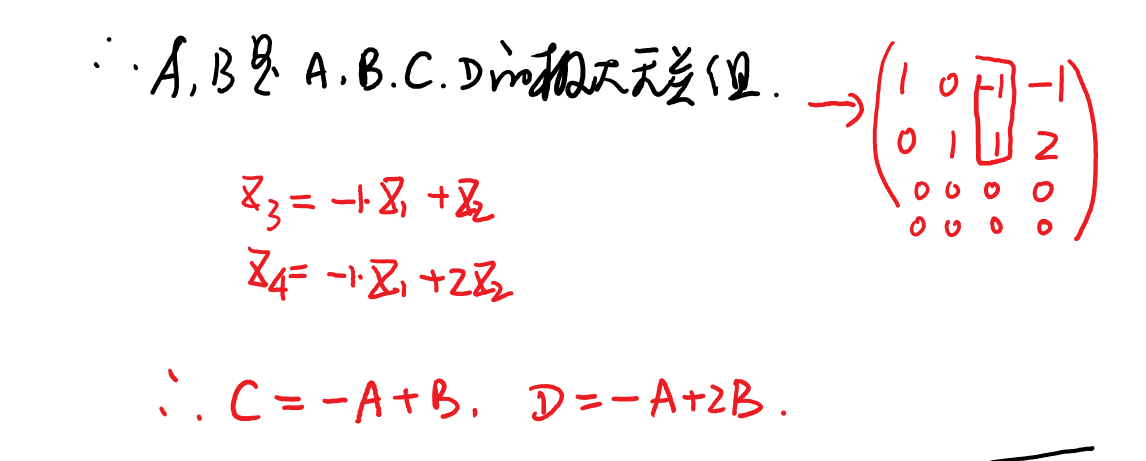 ∴ A, B是 A. B. C. D的极大无关组.
→ (1 0 -1 -1
0 1 1 2
0 0 0 0
0 0 0 0)
X̄₃ = -1·X̄₁ + X̄₂
X̄₄ = -1·X̄₁ + 2X̄₂
∴ C = -A + B, D = -A + 2B.